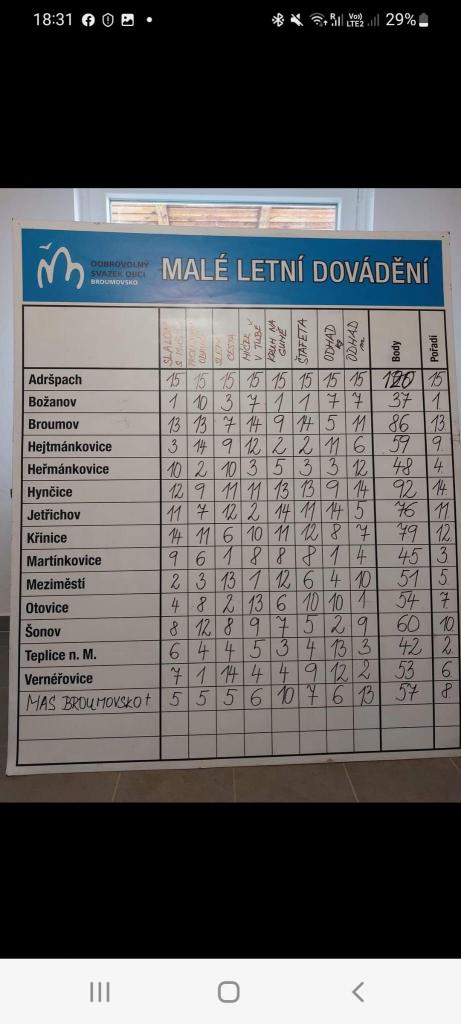 18:31 29%
DOBROVOLNÝ
SVAZEK OBCÍ
BROUMOVSKO
MALÉ LETNÍ DOVÁDĚNÍ
SLALOM S MÍČEM SLEPÁ CESTA MÍČEK V TUBĚ KRUH NA GUMĚ ŠTAFETA ODHAD kg ODHAD m Body Pořadí
Adršpach 15 15 15 15 15 15 15 15 120 15
Božanov 1 10 3 7 1 1 7 7 37 1
Broumov 13 13 7 14 9 14 5 11 86 13
Hejtmánkovice 3 14 9 12 2 2 11 6 59 9
Heřmánkovice 10 2 10 3 5 3 3 12 48 4
Hynčice 12 9 11 11 13 13 9 14 92 14
Jetřichov 11 7 12 2 14 11 14 5 76 11
Křinice 14 11 6 10 11 12 8 7 79 12
Martínkovice 9 6 1 8 8 8 1 4 45 3
Meziměstí 2 3 13 1 12 6 4 10 51 5
Otovice 4 8 2 13 6 10 10 1 54 7
Šonov 8 12 8 9 7 5 2 9 60 10
Teplice n. M. 6 4 4 5 3 4 13 3 42 2
Vernéřovice 7 1 14 4 4 9 12 2 53 6
MAS BROUMOVSKO+ 5 5 5 6 10 7 6 13 57 8